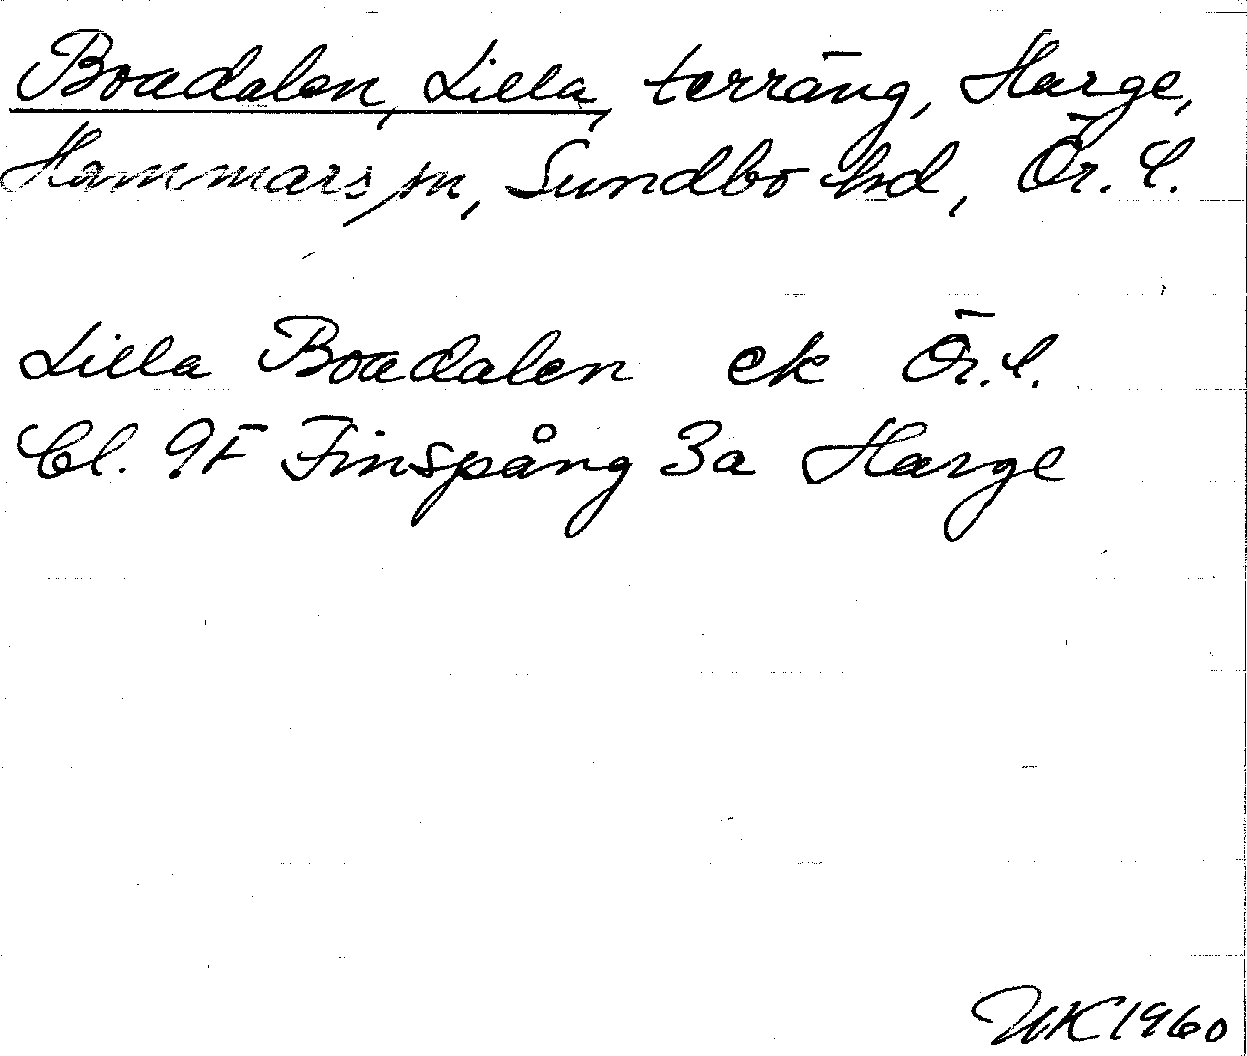 Boadalen, Lilla, terräng, Harge,
Hammars sn, Sundbo hd, Ör. l.
Lilla Boadalen ek Ör. l.
Bl. 9F Finspång 3a Harge
1960